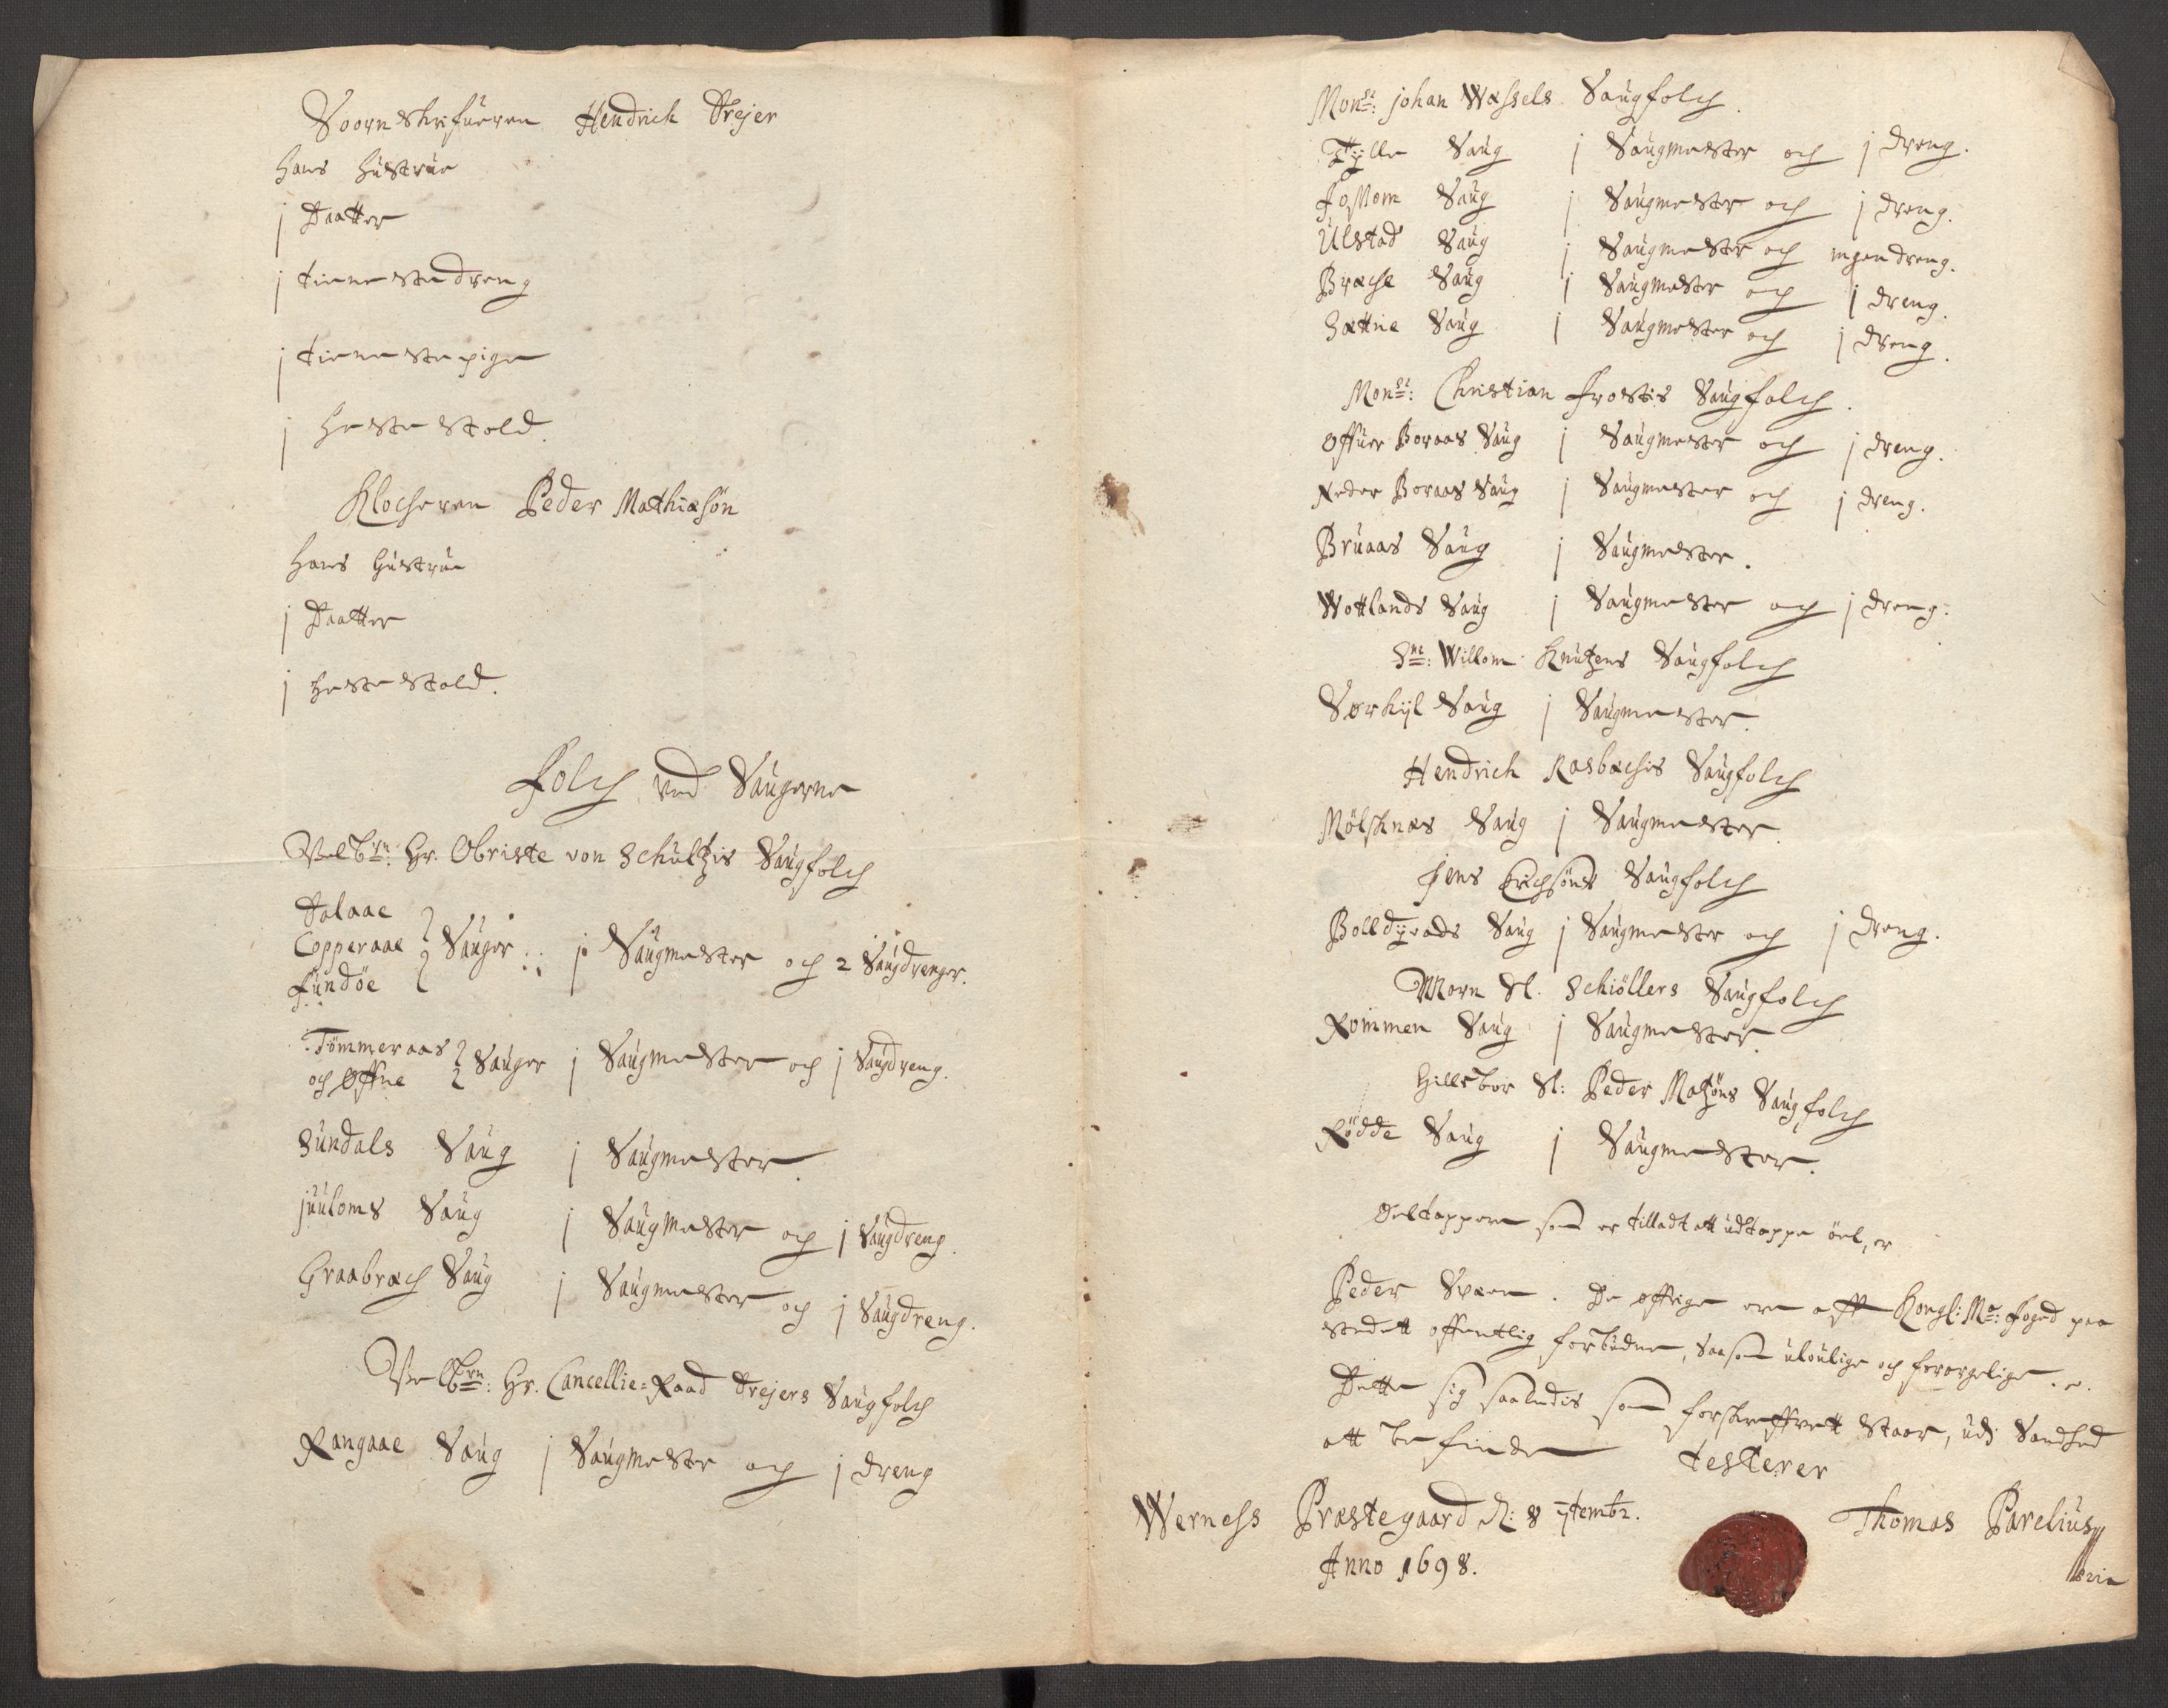 Soornskrifueren Hendrich Drejer
hans hustrue
j Daatter
j tienestedreng
j tienestepige
j hestestold.
Klocheren Peder Mathiæsön
hans hustrue
j Daatter
j hestestold.
Folch ved Saugerne
Velbrn: Hr. Obriste von Schultzis Saugfolch
Dalaae
Copperaae Sauger j Saugmester och 2 Saugdrenger.
Fundöe
Tömmeraas Sauger j Saugmester och j Saugdreng.
och Øffne
Sundals Saug j Saugmester.
juuloms Saug j Saugmester och j Saugdreng.
Graabræch Saug j Saugmester och j Saugdreng.
Velbrn: Hr. Cancellie=Raad Drejers Saugfolch
Rangaae Saug j Saugmester och j dreng
Monsr: johan Wessels Saugfolch.
Tylle Saug j Saugmester och j dreng.
Saug j Saugmester och j dreng.
Ulstad Saug j Saugmester och ingen dreng.
Bræche Saug j Saugmester och j dreng.
Saug j Saugmester och j dreng.
Monsr: Christian Frostis Saugfolch.
Offuer Boraas Saug j Saugmester och j dreng.
Neder Boraas Saug j Saugmester och j dreng.
Bruaas Saug j Saugmester.
Wottlands Saug j Saugmester och j dreng.
Willom Knutzens Saugfolch
Sørkijl Saug j Saugmester.
Hendrich Rasbechis Saugfolch
Mölsknæs Saug j Saugmester.
Jens Erichsöns Saugfolch
Saug j Saugmester och j dreng.
Sl. Schiöllers Saugfolch
Rommen Saug j Saugmester.
Sl: Peder Matzöns Saugfolch
Rödde Saug j Saugmester.
Öeltappere som er tilladt att udtappe öel, er
Peder Svæn. De øffrige ere aff Kongl: Ms: Foged paa
stedett offentlig forbudne, saasom uloulige och forargelige.
Dette sig saaledis som forskreffvett staar, udj Sandhed
att befinde testerer
Werness Præstegaard d: 8 7tembr.
Anno 1698.
Thomas Parelius